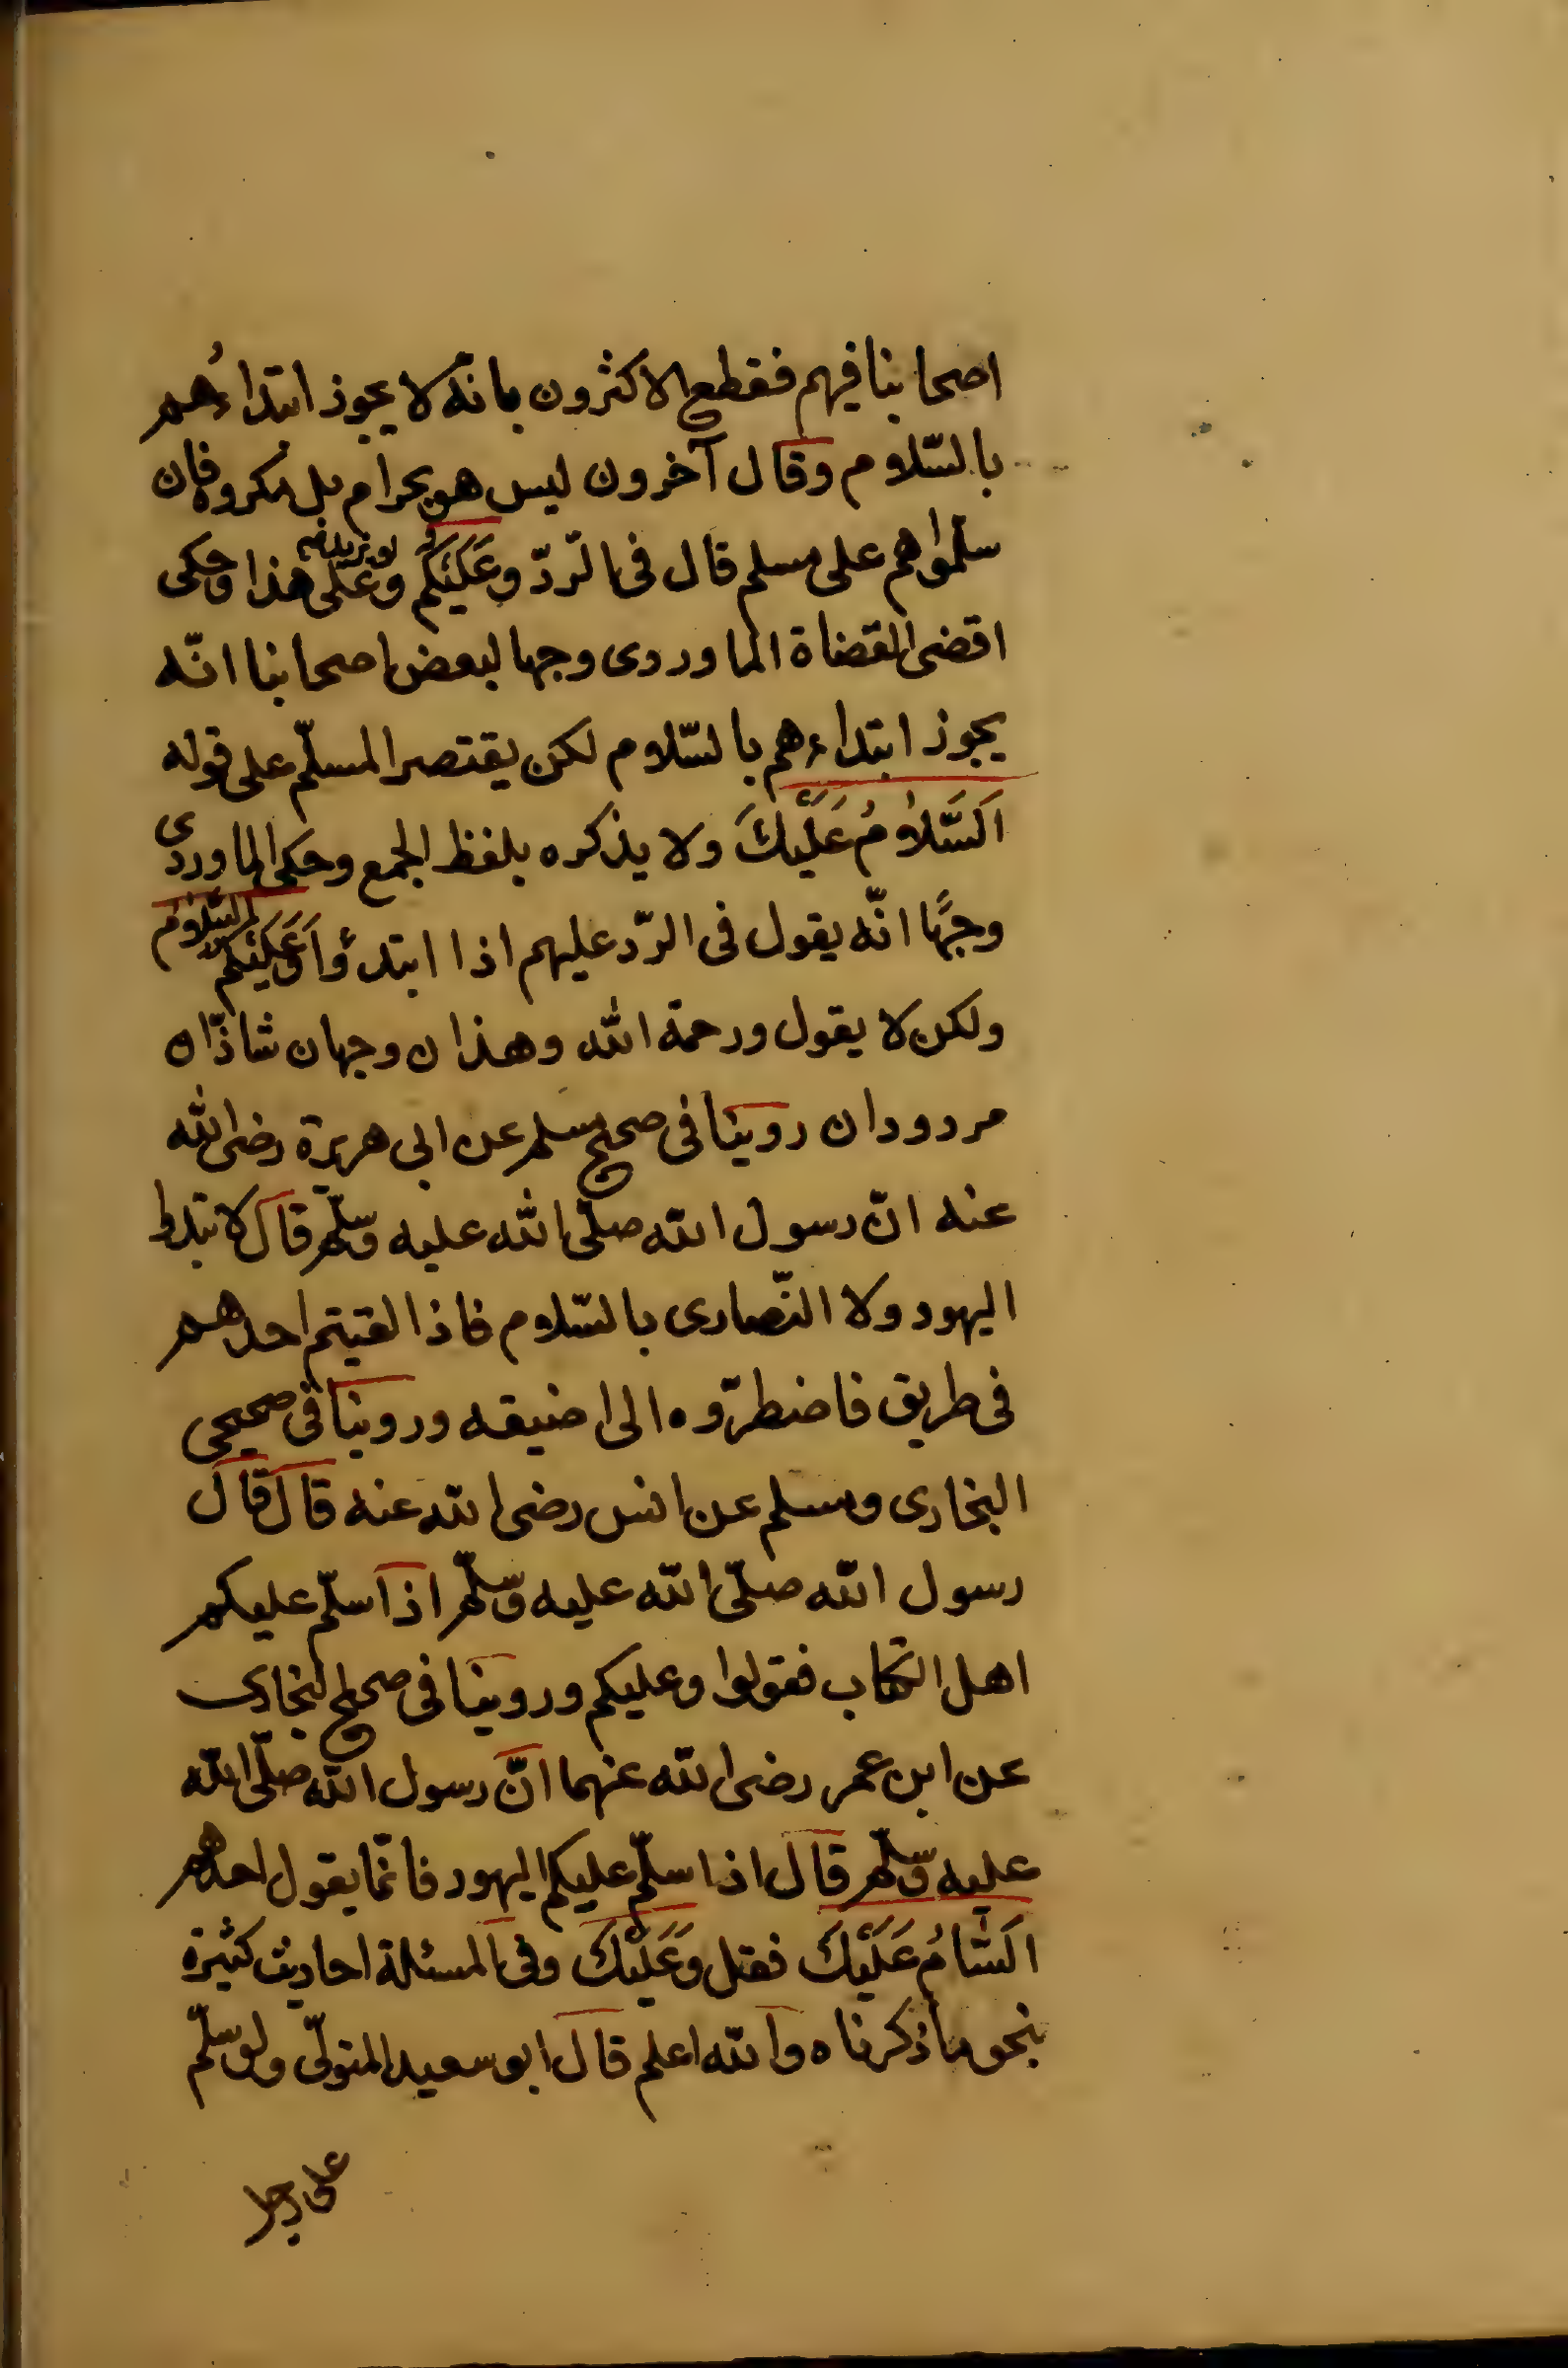 اصحابنا فيهم فقطع الاكثرون بانّه لا يجوز ابتداءُهم
بالسّلام وقال آخرون ليس هو بحرام بل مكروه فان
سلّموا هم على مسلم قال فى الرّدّ وَعَلَيْكُمْ ولا يزيد على هذا وحكى
اقضى القضاة الماوردى وجها لبعض اصحابنا انّه
يجوز ابتداءهم بالسّلام لكن يقتصر المسلّم على قوله
اَلسَّلَامُ عَلَيْكَ ولا يذكره بلفظ الجمع وحكى الماوردى
وجهًا انّه يقول فى الرّد عليهم اذا ابتدؤا وَعَلَيْكُمُ السَّلَامُ
ولكن لا يقول ورحمة الله وهذان وجهان شاذّان
مردودان روينا فى صحيح مسلم عن ابى هريرة رضى الله
عنه انّ رسول الله صلّى الله عليه وسلّم قال لا تبدؤا
اليهود ولا النّصارى بالسّلام فاذا لقيتم احدهم
فى طريق فاضطرّوه الى اضيقه وروينا فى صحيحى
البخارى ومسلم عن انس رضى الله عنه قال قال
رسول الله صلّى الله عليه وسلّم اذا سلّم عليكم
اهل الكتاب فقولوا وعليكم وروينا فى صحيح البخارى
عن ابن عمر رضى الله عنهما انّ رسول الله صلّى الله
عليه وسلّم قال اذا سلّم عليكم اليهود فانّما يقول احدهم
اَلسَّامُ عَلَيْكَ فقل وَعَلَيْكَ وفى المسئلة احاديث كثيرة
بنحو ما ذكرناه والله اعلم قال ابو سعيد المتولّى ولو سلّم
على رجل